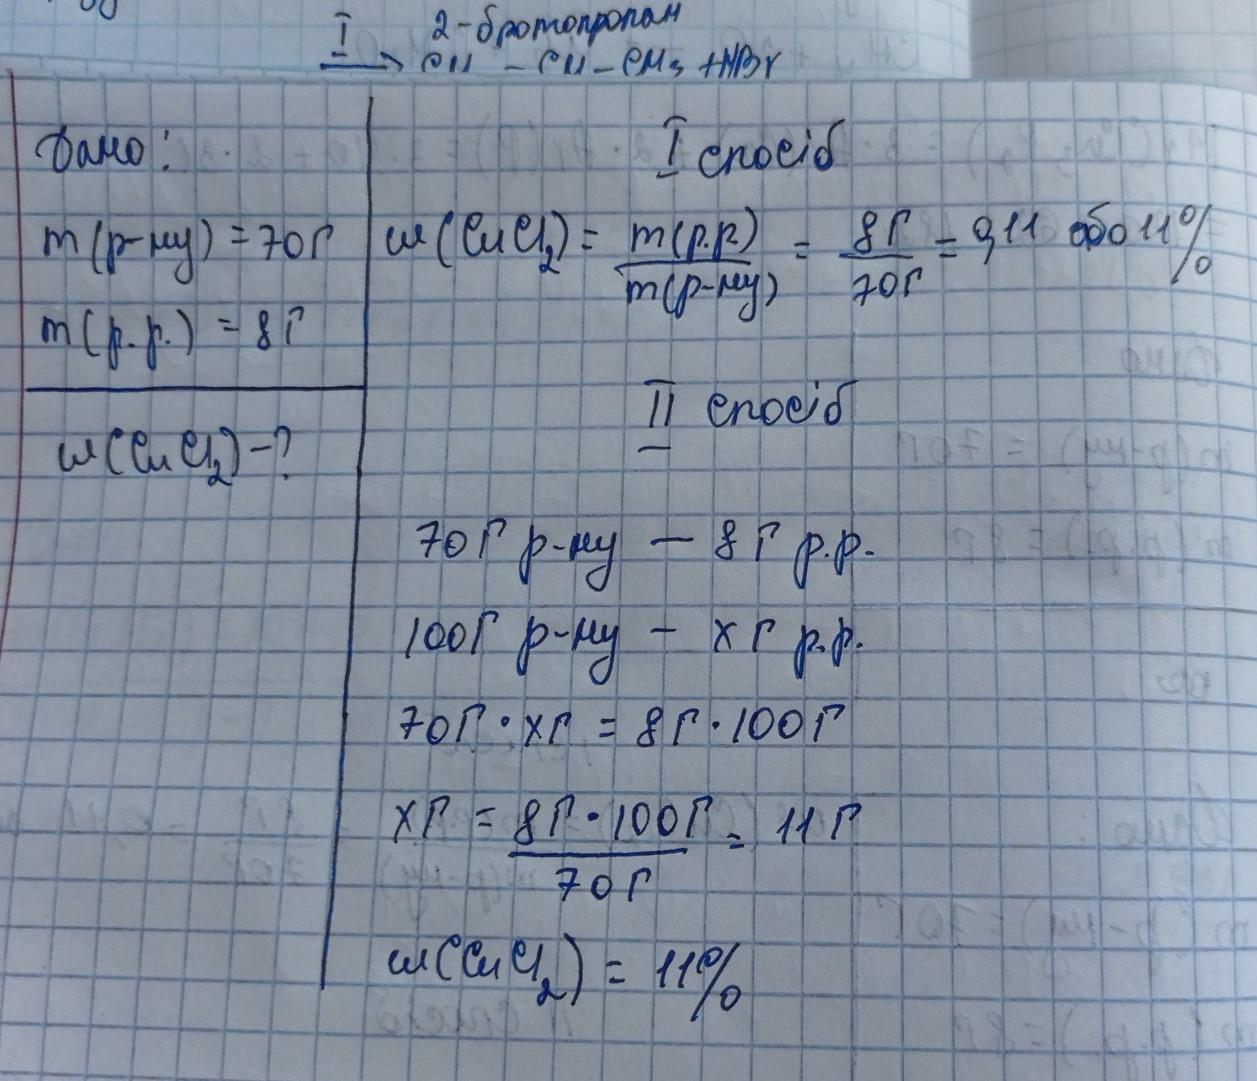 I 2-бромопропан
CH – CH – CH₃ + HBr
Дано:
m(р-ну) = 70г
m(р.р.) = 8г
w(CuCl₂) - ?
I спосіб
w(CuCl₂) = m(р.р.) / m(р-ну) = 8г / 70г = 0,11 або 11%
II спосіб
70г р-ну — 8г р.р.
100г р-ну — xг р.р.
70г · xг = 8г · 100г
xг = 8г · 100г / 70г = 11г
w(CuCl₂) = 11%